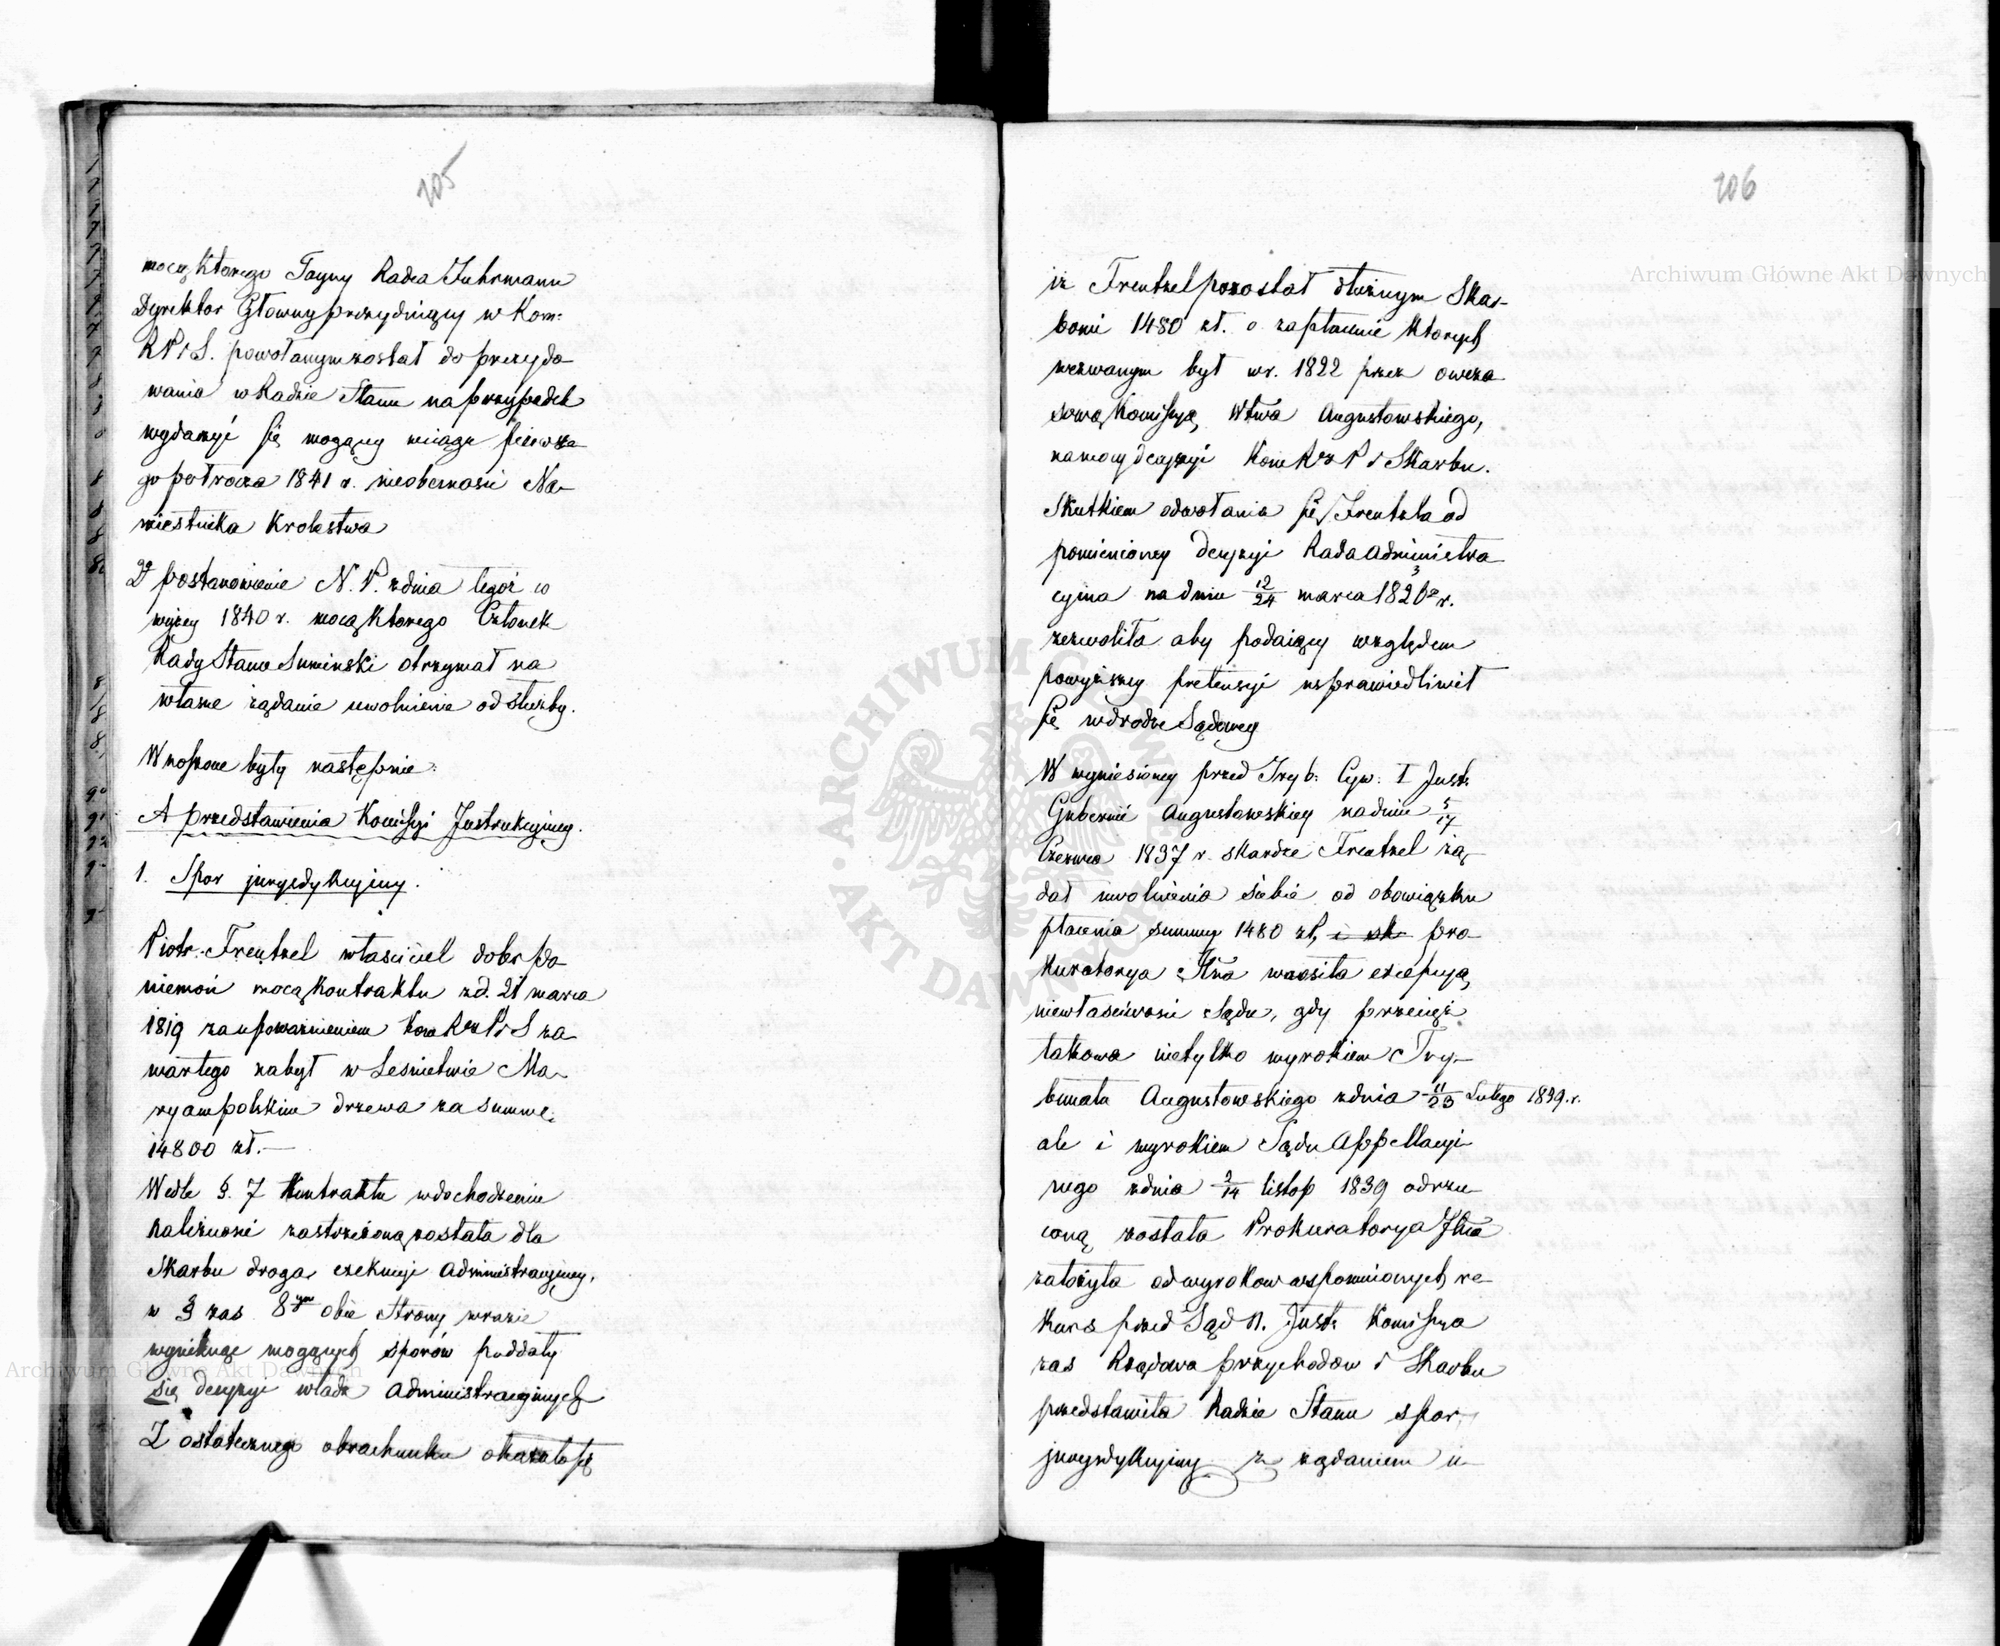 205
mocą ktorego Tayny Radca Fuhrmann
Dyrektor Głowny prezyduiący w Kom:
R P i S. powołanym został do prezydo-
wania w Radzie Stanu na przypadek
wydarzyć się mogącey wciągu pierwsze-
go połrocza 1841 r. nieobecnosci Na-
miestnika Krolestwa
2e postanowienie N. P. zdnia tegoż
1840 r. mocą ktorego Członek
Rady Stanu Suminski otrzymał na
własne żądanie uwolnienie od służby.
Wnoszone były następnie:
A przedstawienia Komissyi Instrukcyiney.
1. Spor juryzdykcyiny.
Piotr Frentzel własciciel dobr Po-
niemoń mocą Kontraktu zd. 21 marca
1819 za upoważnieniem Kom RzP i S za-
wartego nabył w Leśnictwie Ma-
ryampolskim drzewa za summę
14800 zł.—
Wedle §. 7 Kontraktu wdochodzeniu
należnosci zastrzeżoną została dla
Skarbu droga exekucyi administracyiney,
w § zas 8ym obie Strony wrazie
wyniknąć mogących sporów poddały
się decyzyi władz administracyinych
Z ostatecznego obrachunku okazało się
206
iż Frentzel pozostał dłużnym Skar-
bowi 1480 zł. o zapłacenie ktorych
wezwanym był w r. 1822 przez owcza-
sową Komissyą Wtwa Augustowskiego,
na mocy decyzyi Kom RzP i Skarbu.
Skutkiem odwołania się Frentzla od
pomienioney decyzyi Rada Administra-
cyina na dniu 12/24 marca 1826 r.
zezwoliła aby podaiący względem
powyższey pretensyi usprawiedliwił
się wdrodze Sądowey
W wyniesioney przed Tryb: Cyw: I Inst:
Gubernii Augustowskiey na dniu 5/17
Czerwca 1837 r. skardze Frentzel żą-
dał uwolnienia siebie od obowiązku
płacenia summy 1480 zł, i sk pro-
kuratorya Jlna wnosiła excepcyą
niewłasciwosci Sądu, gdy przecież
takowa nietylko wyrokiem Try-
bunału Augustowskiego zdnia 11/23 Lutego 1839. r.
ale i wyrokiem Sądu Appellacyi-
nego zdnia 2/14 listop 1839 odrzu-
coną została Prokuratorya Jlna
założyła od wyrokow wspomnionych re-
kurs przed Sąd N. Inst: Komissya
zas Rządowa przychodow i Skarbu
przedstawiła Radzie Stanu spor
juryzdykcyiny z żądaniem u-
Archiwum Główne Akt Dawnych
Archiwum Główne Akt Dawnych